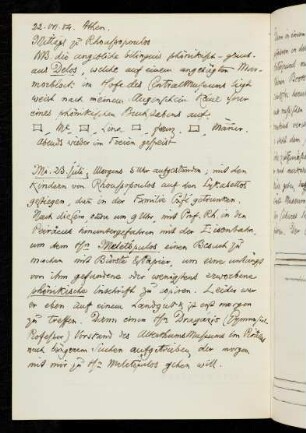 22. VII. 84. Athen.
Mittags zu Rhousopoulos
NB. die angebliche bilinguis phönikisch-griech.
aus Delos, welche auf einem angefügten Mar-
morblock im Hofe des Centralmuseums liegt
weist nach meinem Augenschein keine Spur
eines phönikischen Buchstabens auf.
abends wieder im Freien gespeist
Mi. 23. Juli, Morgens 5 Uhr aufgestanden, mit den
Kindern von Rhousopoulos auf den Lykabettos
gestiegen, dann in der Familie Café getrunken.
Nach diesem dann um 9 Uhr mit Prof. Rh. in den
Peiraeus heruntergefahren mit der Eisenbahn,
um dem Hrn Meletopulos einen Besuch zu
machen mit Bürste & Papier, um eine unlängst
von ihm gefundene oder wenigstens erworbene
phönikische Inschrift zu copiren. Leider war
er eben auf einem Landgut & erst morgen
zu treffen. Dann einen Hrn Dragatzis (Gymnasial-
Professor) Vorstand des Alterthumsmuseums im Piräus
nach längerem Suchen aufgetrieben, der morgen
mit mir zu Hrn Meletopulos gehen will.